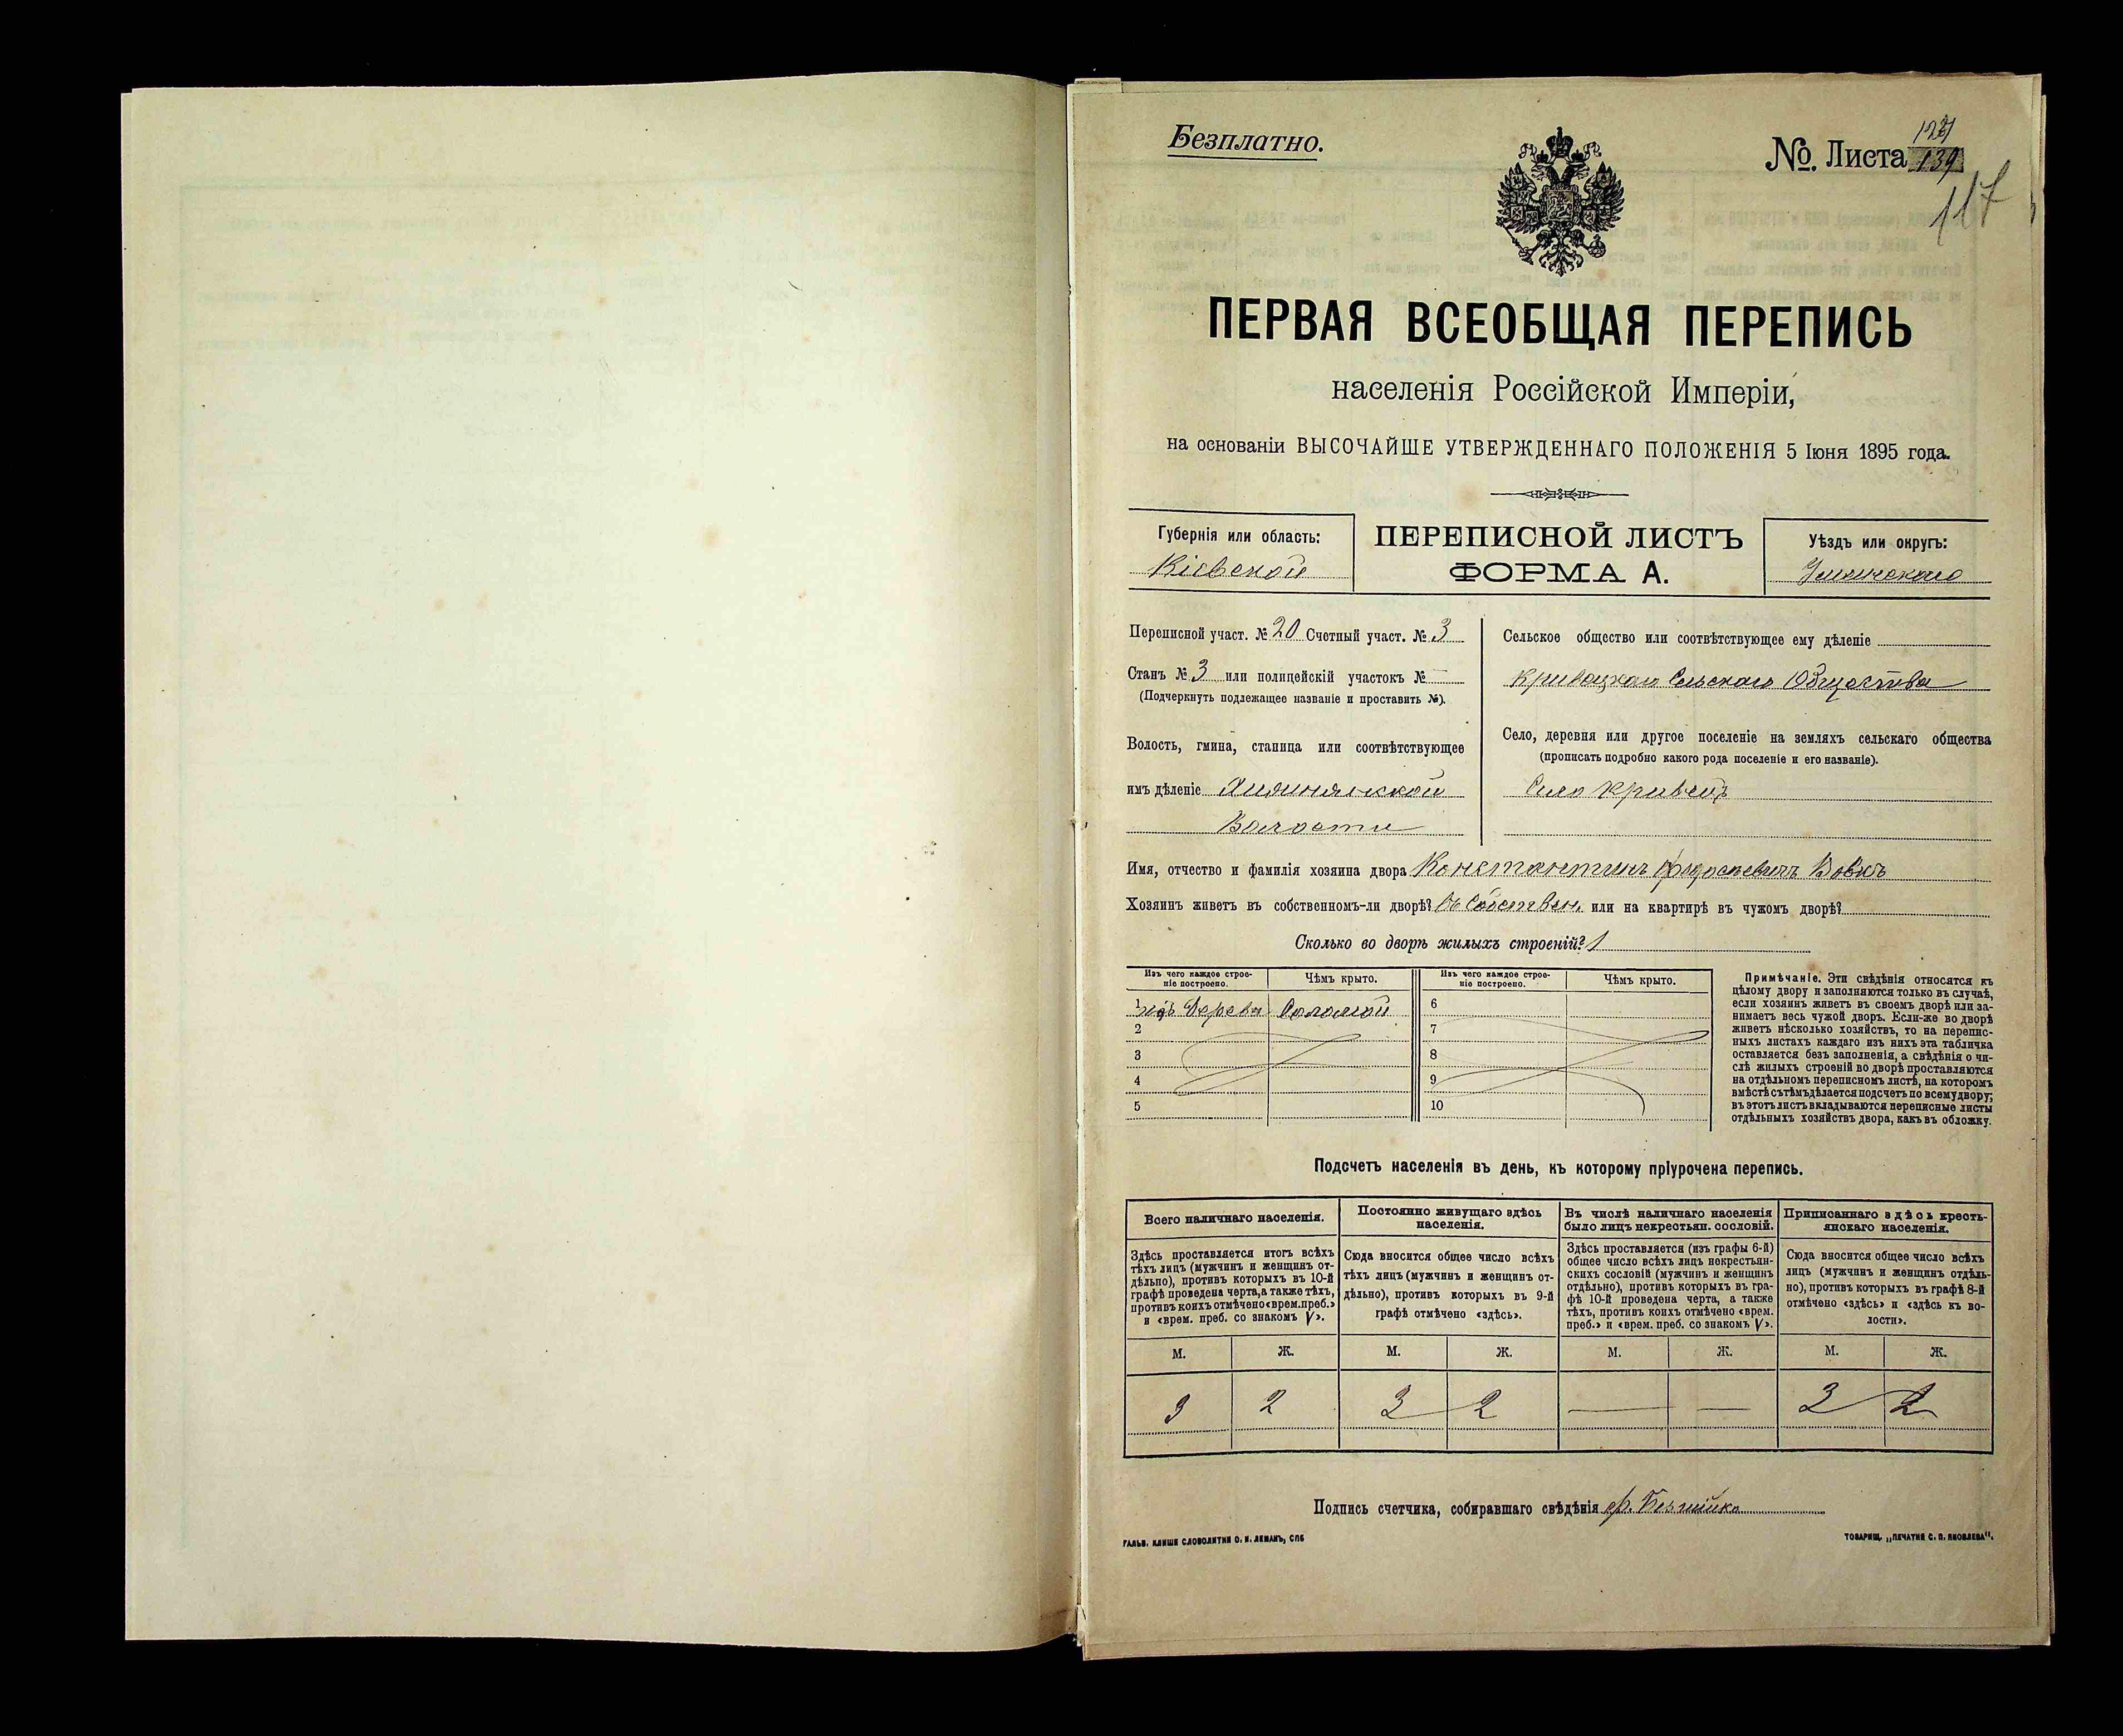 Безплатно.
№ Листа 139
117
ПЕРВАЯ ВСЕОБЩАЯ ПЕРЕПИСЬ
населенія Россійской Имперіи,
на основаніи ВЫСОЧАЙШЕ УТВЕРЖДЕННАГО ПОЛОЖЕНІЯ 5 Іюня 1895 года.
Губернія или область:
Кіевской
ПЕРЕПИСНОЙ ЛИСТЪ
ФОРМА А.
Уѣздъ или округъ:
Уманскаго
Переписной участ. № 20 Счетный участ. № 3
Станъ № 3 или полицейскій участокъ № —
(Подчеркнуть подлежащее названіе и проставить №).
Волость, гмина, станица или соотвѣтствующее
имъ дѣленіе
Волости
Сельское общество или соотвѣтствующее ему дѣленіе
Сельскаго Общества
Село, деревня или другое поселеніе на земляхъ сельскаго общества
(прописать подробно какого рода поселеніе и его названіе).
Село Кривецъ
Имя, отчество и фамилія хозяина двора Константинъ
Хозяинъ живетъ въ собственномъ-ли дворѣ? Въ Собствен. или на квартирѣ въ чужомъ дворѣ?
Сколько во дворѣ жилыхъ строеній? 1
Изъ чего каждое строе-
ніе построено.
Чѣмъ крыто.
1 изъ Дерева Соломой
2
3
4
5
Изъ чего каждое строе-
ніе построено.
Чѣмъ крыто.
6
7
8
9
10
Примѣчаніе. Эти свѣдѣнія относятся къ
цѣлому двору и заполняются только въ случаѣ,
если хозяинъ живетъ въ своемъ дворѣ или за-
нимаетъ весь чужой дворъ. Если-же во дворѣ
живетъ нѣсколько хозяйствъ, то на перепис-
ныхъ листахъ каждаго изъ нихъ эта табличка
оставляется безъ заполненія, а свѣдѣнія о чи-
слѣ жилыхъ строеній во дворѣ проставляются
на отдѣльномъ переписномъ листѣ, на которомъ
вмѣстѣ съ тѣмъ дѣлается подсчетъ по всему двору;
въ этотъ листъ вкладываются переписные листы
отдѣльныхъ хозяйствъ двора, какъ въ обложку.
Подсчетъ населенія въ день, къ которому пріурочена перепись.
Всего наличнаго населенія.
Здѣсь проставляется итогъ всѣхъ
тѣхъ лицъ (мужчинъ и женщинъ от-
дѣльно), противъ которыхъ въ 10-й
графѣ проведена черта, а также тѣхъ,
противъ коихъ отмѣчено «врем. преб.»
и «врем. преб. со знакомъ V».
М. Ж.
3 2
Постоянно живущаго здѣсь
населенія.
Сюда вносится общее число всѣхъ
тѣхъ лицъ (мужчинъ и женщинъ от-
дѣльно), противъ которыхъ въ 9-й
графѣ отмѣчено «здѣсь».
М. Ж.
3 2
Въ числѣ наличнаго населенія
было лицъ некрестьян. сословій.
Здѣсь проставляется (изъ графы 6-й)
общее число всѣхъ лицъ некрестьян-
скихъ сословій (мужчинъ и женщинъ
отдѣльно), противъ которыхъ въ гра-
фѣ 10-й проведена черта, а также
тѣхъ, противъ коихъ отмѣчено «врем.
преб.» и «врем. преб. со знакомъ V».
М. Ж.
— —
Приписаннаго здѣсь кресть-
янскаго населенія.
Сюда вносится общее число всѣхъ
лицъ (мужчинъ и женщинъ отдѣль-
но), противъ которыхъ въ графѣ 8-й
отмѣчено «здѣсь» и «здѣсь къ во-
лости».
М. Ж.
3 2
Подпись счетчика, собиравшаго свѣдѣнія
ГАЛЬВ. КЛИШЕ СЛОВОЛИТНИ О. И. ЛЕМАНЪ, СПБ
ТОВАРИЩ. „ПЕЧАТНЯ С. П. ЯКОВЛЕВА".